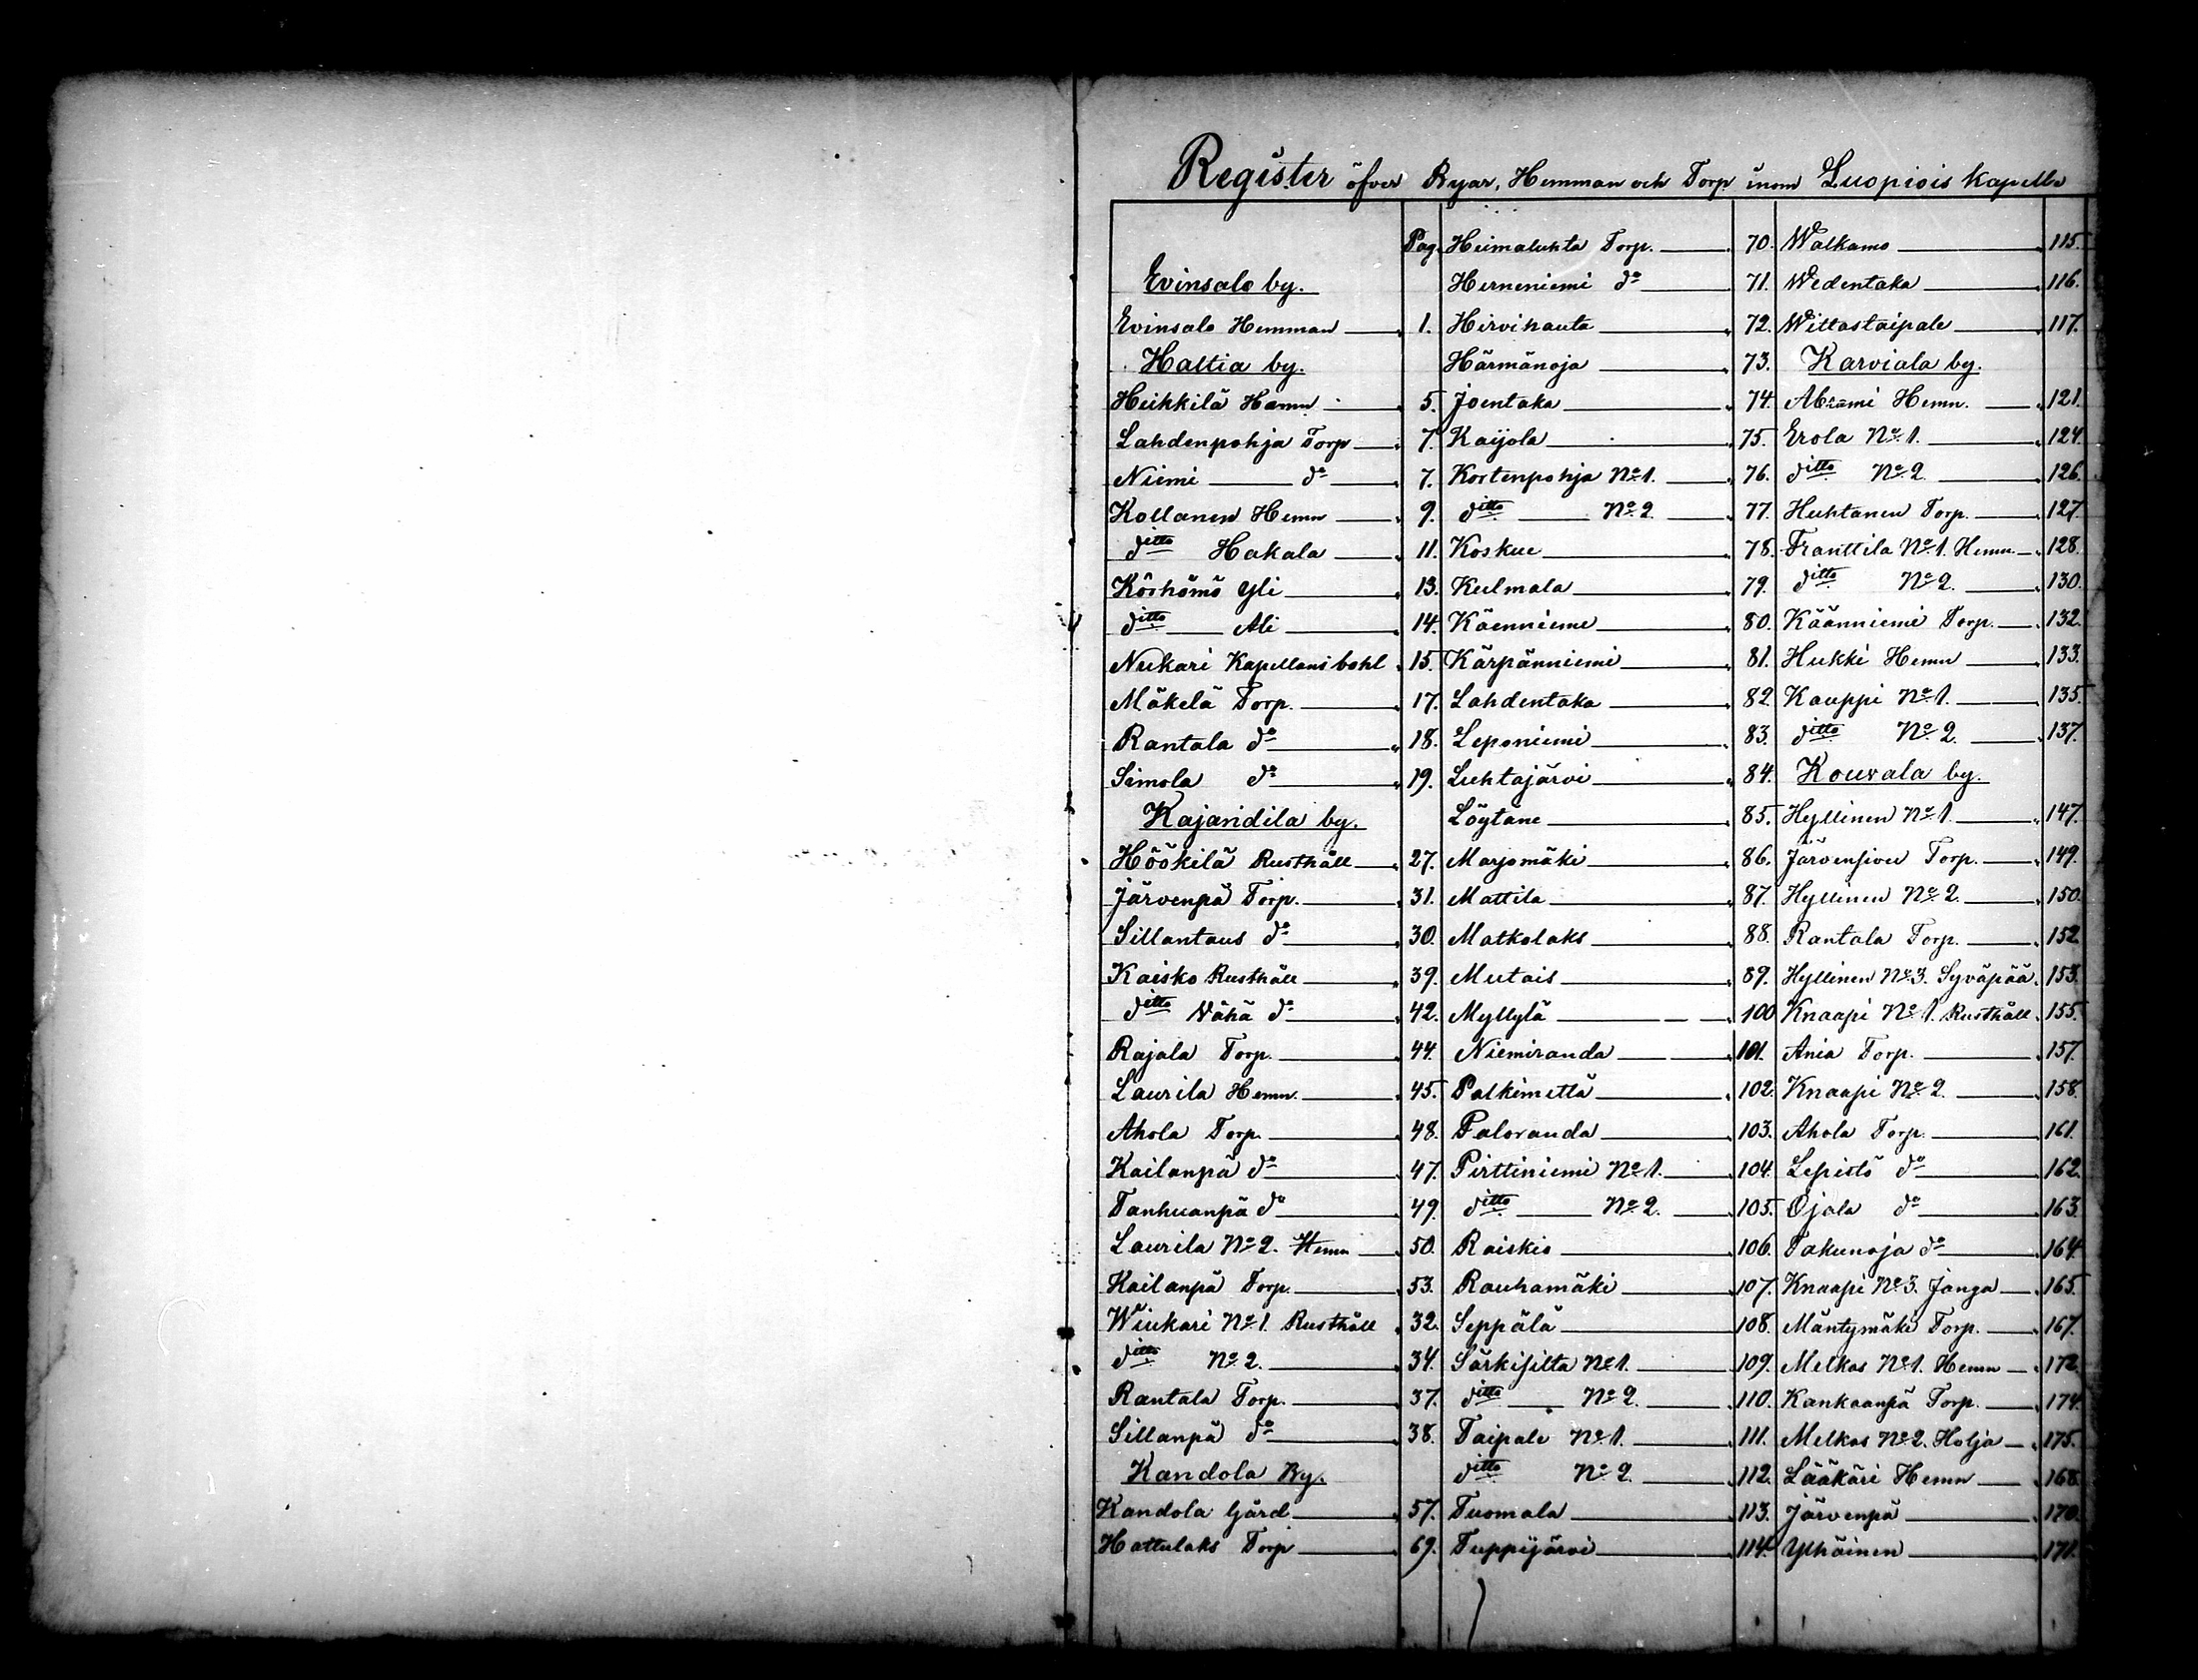 Register öfver Byar, Hemman och Torp inom Luopiois Kapell
Pag.
Evinsalo by.
Evinsalo Hemman 1.
Haltia by.
Heikkilä Hemn 5.
Lahdenpohja Torp 7.
Niemi do 7.
Kollanen Hemn 9.
ditto Hakala 11.
Köshömö Yli 13.
ditto Ali 14.
Nukari Kapellansbohl 15.
Mäkelä Torp. 17.
Rantala do 18.
Simola do 19.
Kajandila by.
Höökilä Rusthåll 27.
Järvenpä Torp. 31.
Sillantaus do 30.
Kaisko Rusthåll 39.
ditto Vähä do 42.
Rajala Torp. 44.
Laurila Hemn. 45.
Ahola Torp. 48.
Kailanpä do 47.
Tanhuanpä do 49.
Laurila No 2. Hemn 50.
Kailanpä Torp. 53.
Wiukari No 1. Rusthåll 32.
ditto No 2. 34.
Rantala Torp. 37.
Sillanpä do 38.
Kandola By.
Kandola Gård 57.
Hattulaks Torp 69.
Heimaluhta Torp. 70.
Herneniemi do 71.
Hirvihauta 72.
Härmänoja 73.
Joentaka 74.
Kaijola 75.
Kortenpohja No 1. 76.
ditto No 2. 77.
Koskue 78.
Kulmala 79.
Käenniemi 80.
Kärpänniemi 81.
Lahdentaka 82.
Leponiemi 83.
Luhtajärvi 84.
Löytäne 85.
Marjomäki 86.
Mattila 87.
Matkolaks 88.
Mutais 89.
Myllylä 100
Niemiranda 101.
Palkimettä 102.
Paloranda 103.
Pirttiniemi No 1. 104.
ditto No 2. 105.
Raiskio 106.
Rauhamäki 107.
Seppälä 108.
Särkisilta No 1. 109.
ditto No 2. 110.
Taipale No 1. 111.
ditto No 2. 112.
Tuomala 113.
Tuppijärvi 114.
Walkamo 115.
Wedentaka 116.
Wittastaipale 117.
Karviala by.
Abrami Hemn. 121.
Erola No 1. 124.
ditto No 2. 126.
Huhtanen Torp. 127.
Franttila No 1. Hemn. 128.
ditto No 2. 130.
Käänniemi Torp. 132.
Hukki Hemn 133.
Kauppi No 1. 135.
ditto No 2. 137.
Kouvala by.
Hyllinen No 1. 147.
Järvensivu Torp. 149.
Hyllinen No 2. 150.
Rantala Torp. 152.
Hyllinen No 3. Syväpää 153.
Knaapi No 1. Rusthåll 155.
Ania Torp. 157.
Knaapi No 2. 158.
Ahola Torp. 161.
Lepistö do 162.
Ojala do 163.
Takunoja do 164.
Knaapi No 3. Janga 165.
Mäntymäki Torp. 167.
Melkas No 1. Hemn 172.
Kankaanpä Torp. 174.
Melkas No 2. Holja 175.
Lääkäri Hemn 168.
Järvenpä 170.
Yhäinen 171.